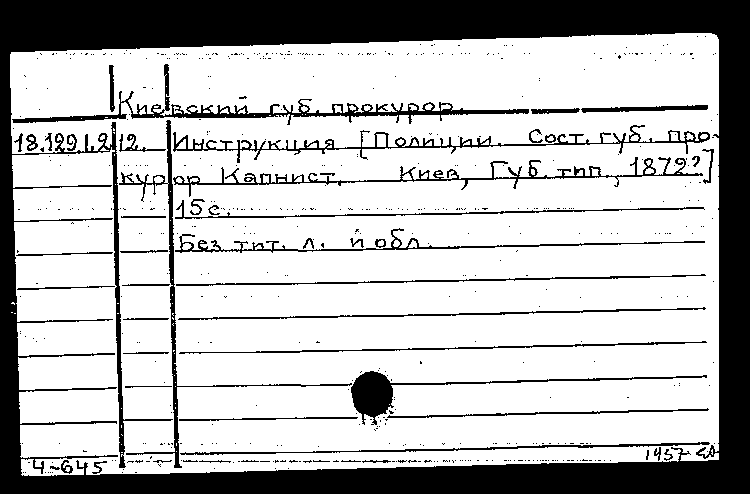 Киевский губ. прокурор.
18.129.1.212. Инструкция [Полиции. Сост. губ. про-
курор Капнист. Киев, Губ. тип., 1872?]
15 с.
Без тит. л. и обл.
4-645
1957